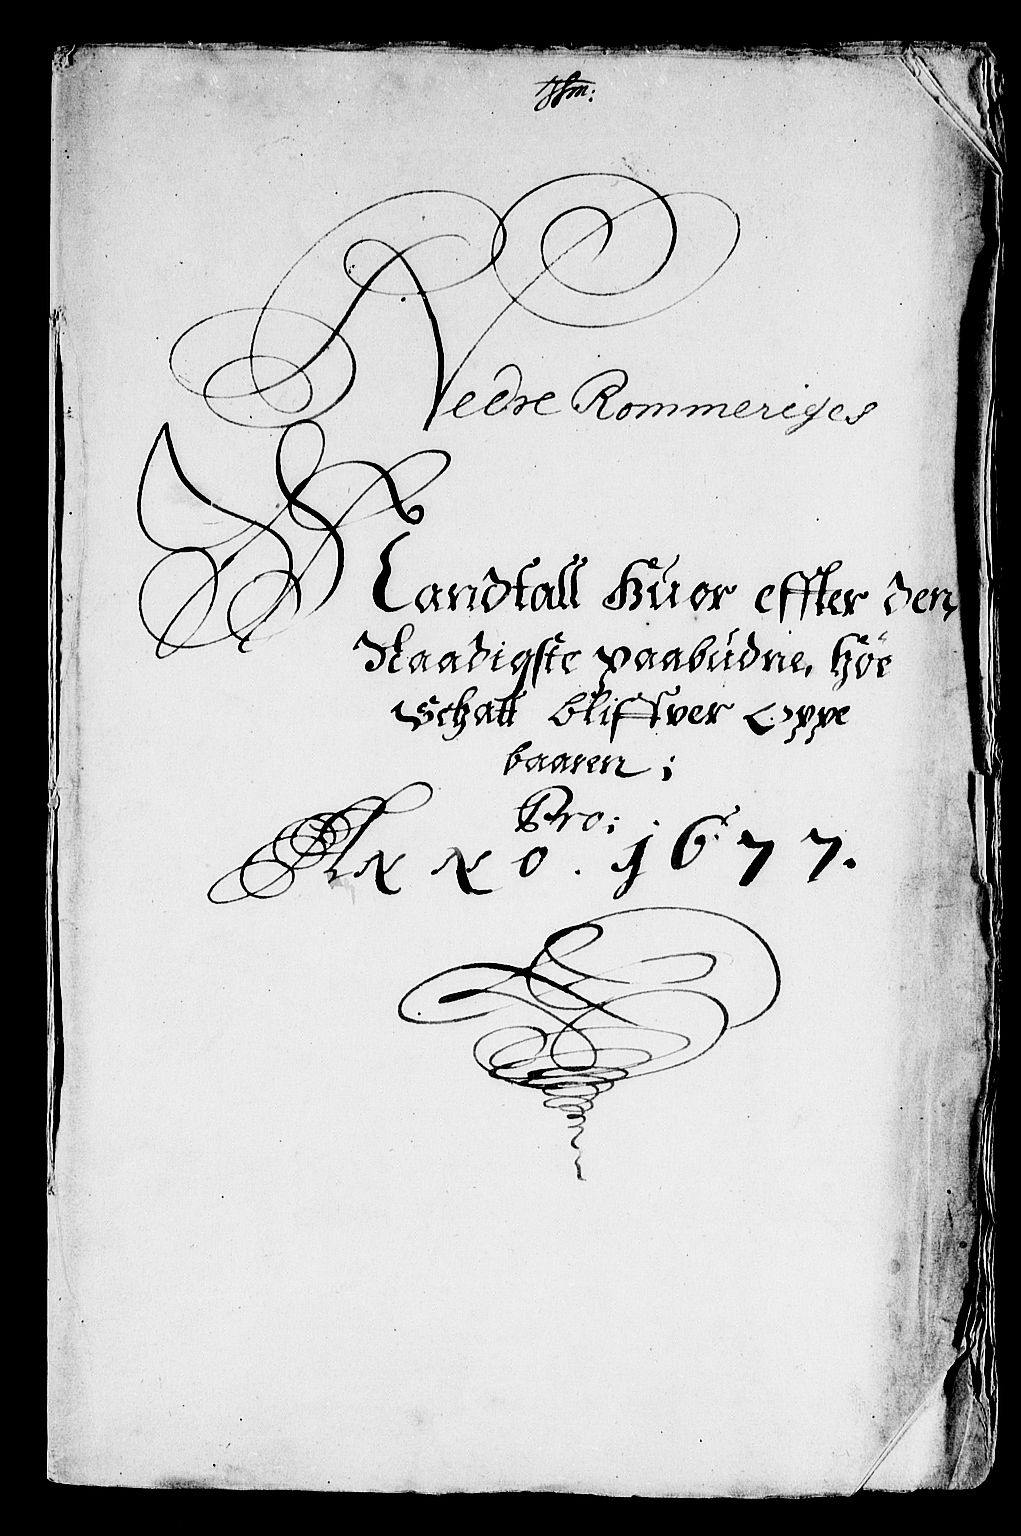 Nedre Rommeriges
Mandtall huor effter den
Naadigste paabudne, höe
Schatt bliffver Oppe
baaren;
Pro;
Anno. 1677.